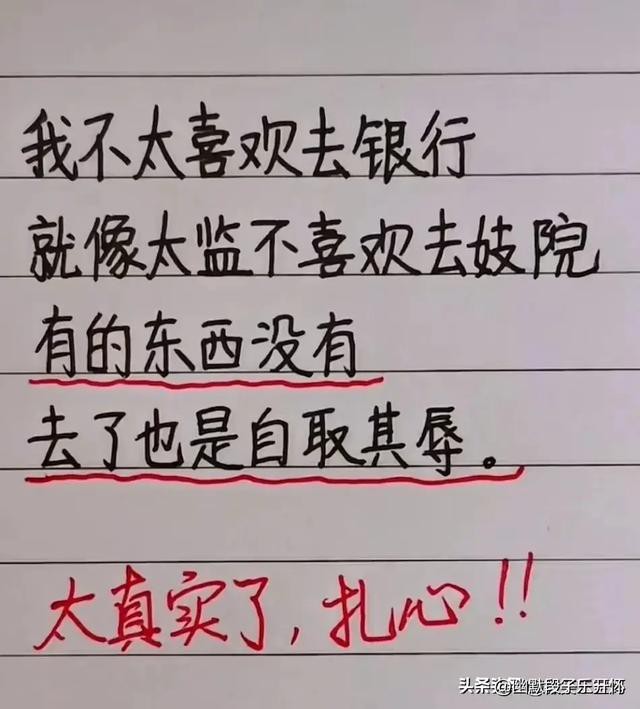 我不太喜欢去银行
就像太监不喜欢去妓院
有的东西没有
去了也是自取其辱。
太真实了,扎心!!
头条 @幽默段子乐开怀